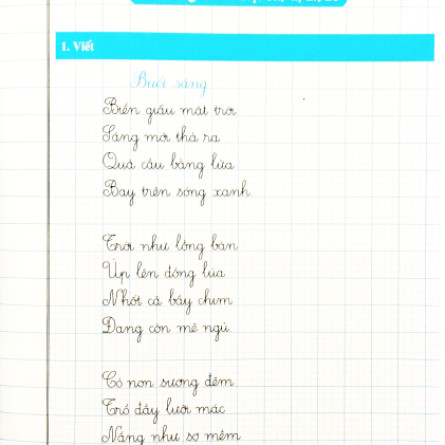 1. Viết
Buổi sáng
Biển giấu mặt trời
Sáng mới thả ra
Quả cầu bằng lửa
Bay trên sóng xanh.
Trời như lồng bàn
Úp lên đồng lúa
Nhốt cả bầy chim
Đang còn mê ngủ.
Cỏ non sương đêm
Trổ đầy lưỡi mác
Nắng như sợ mềm